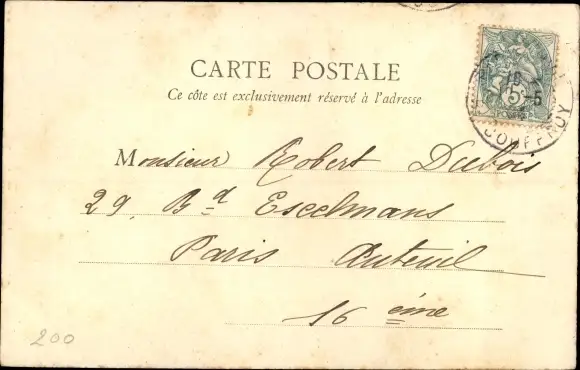 CARTE POSTALE
Ce côte est exclusivement réservé à l'adresse
Monsieur Robert Dubois
29, Bd Escelmans
Paris Auteuil
16 ème
200